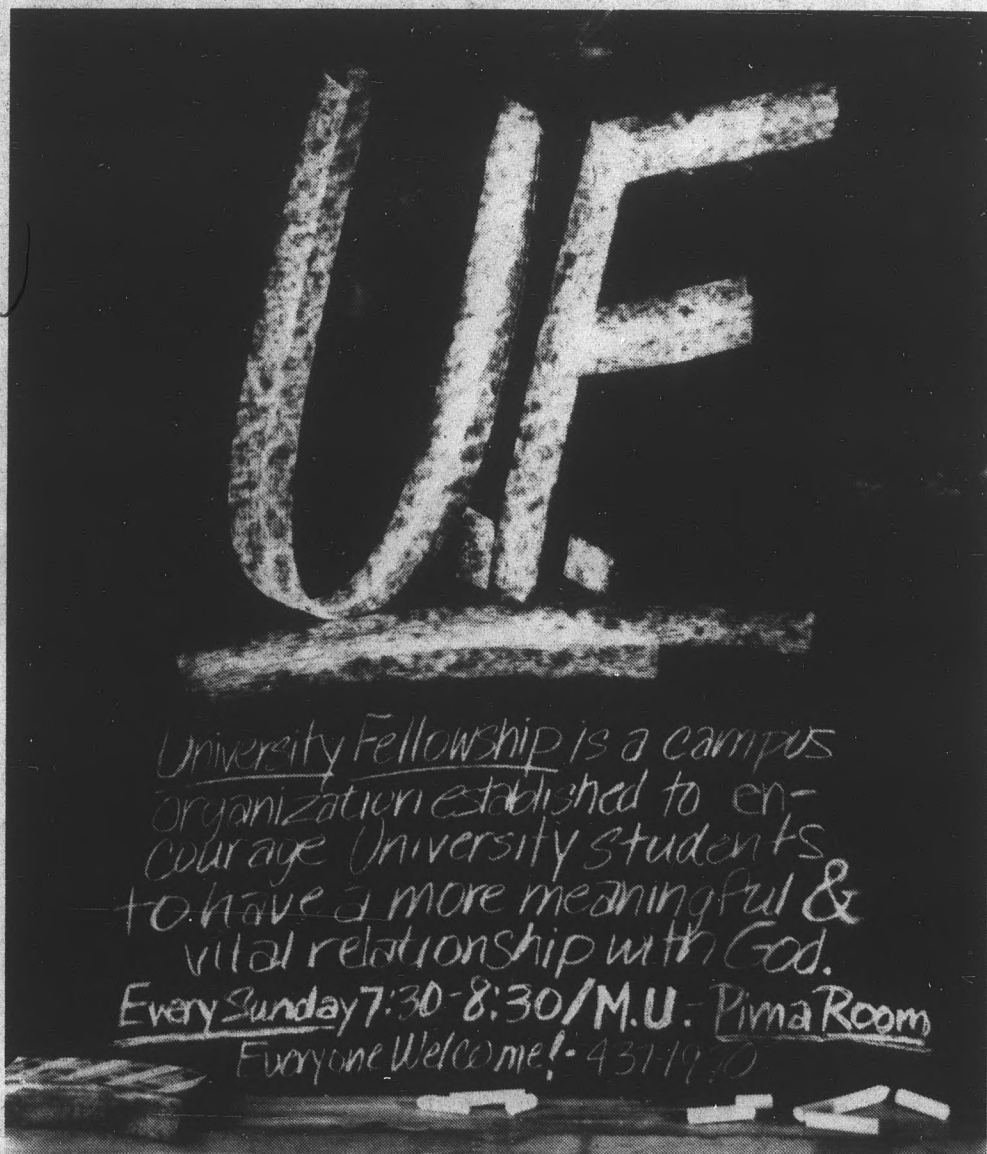 U.F.
University Fellowship is a campus
organization established to en-
courage University students
to have a more meaningful &
vital relationship with God.
Every Sunday 7:30-8:30/M.U. - Pima Room
Everyone Welcome! -